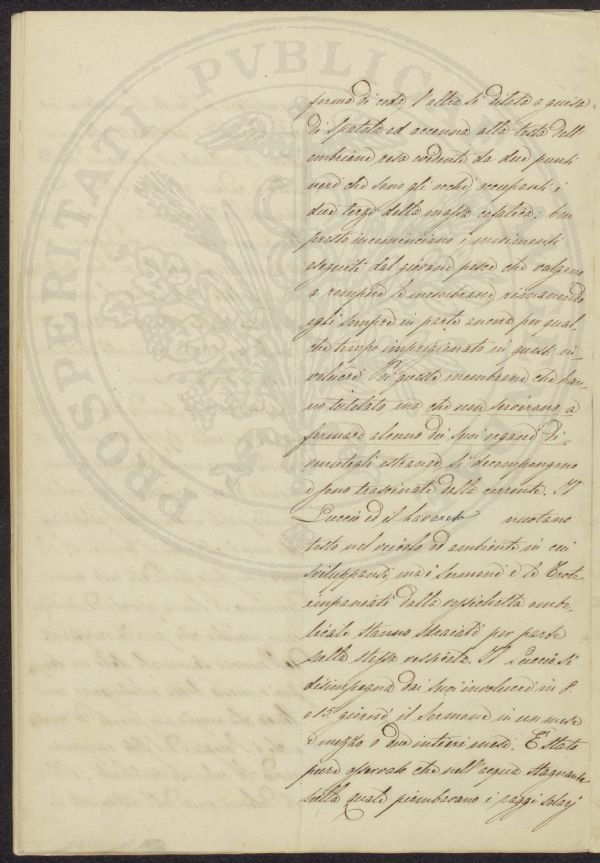 PROSPERITATI PVBLICAE
forma di coda, l'altra si dilata a guisa
di spatola ed accenna alla testa dell'
embrione resa evidente da due punti
neri che sono gli occhi occupanti i
due terzi della massa cefalica; ben
presto incominciano i movimenti
eseguiti dal giovane pesce che valgono
a rompere le membrane rimanendo
egli sempre in parte ancora per qual
che tempo imprigionato in questi in-
volucri. Poi queste membrane che han-
no tutelato ma che non servirono a
formare alcuno dei suoi organi di-
venute gli estranee si decompongono
e sono trascinate dalla corrente. Il
Luccio ed il Lavareto nuotano
tosto nel veicolo ed ambiente in cui
sviluppansi, ma i Sermoni e le Trote
impaniati dalla vescichetta ombe-
licale stanno sdraiati per parte
sulla stessa vescica. Il Luccio si
disimpegna dai suoi involucri in 8.
o 15 giorni il Sermone in un mese
e mezzo o due interi mesi. È stato
pure osservato che nell'acqua stagnante
sulla quale piombavano i raggi solari